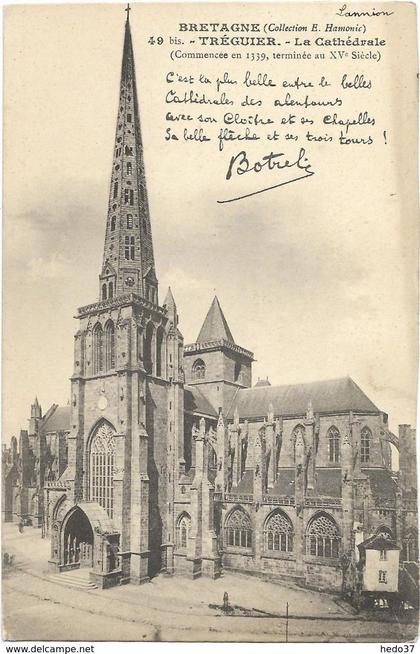 Lannion
BRETAGNE (Collection E. Hamonic)
49 bis. - TRÉGUIER. - La Cathédrale
(Commencée en 1339, terminée au XVe Siècle)
C'est la plus belle entre le belles
Cathédrales des alentours
avec son Cloître et ses Chapelles
Sa belle flêche et ses trois tours !
Botrel
hedo37